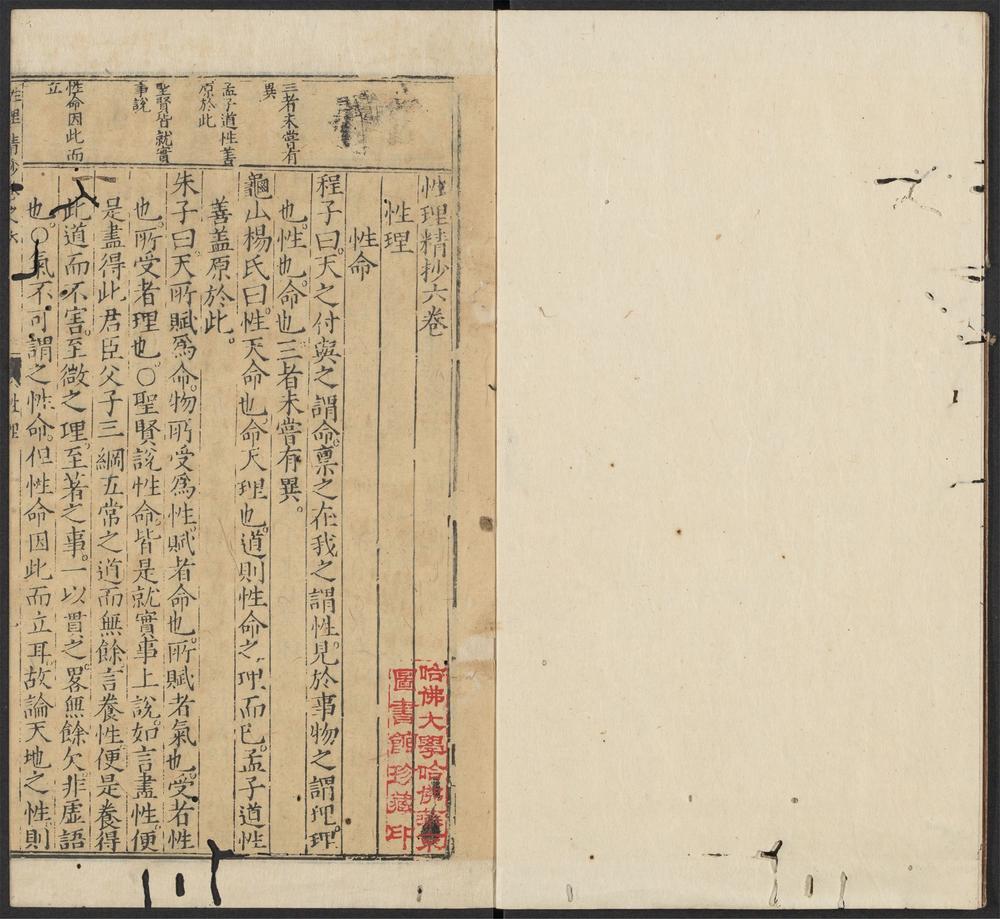 性理精抄六卷
性理
性命
程子曰。天之付與之謂命。稟之在我之謂性。見於事物之謂理。理
也。性也。命也。三者未嘗有異。
龜山楊氏曰。性天命也。命天理也。道則性命之理而已。孟子道性
善盖原於此。
朱子曰。天所賦爲命。物所受爲性。賦者命也。所賦者氣也。受者性
也。所受者理也。○聖賢說性命。皆是就實事上說。如言盡性。便
是盡得此君臣父子三綱五常之道而無餘。言養性便是養得
此道而不害。至微之理。至著之事。一以貫之。畧無餘欠。非虛語
也。○氣不可謂之性命。但性命因此而立耳。故論天地之性則
三者未嘗有
異
孟子道性善
原於此
聖賢皆就實
事說
性命因此而
立
性理精抄
之六
性理
哈佛大學哈佛燕京
圖書館珍藏印